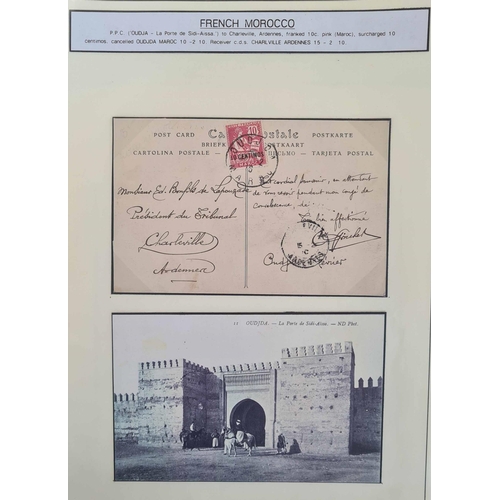 FRENCH MOROCCO
P.P.C. ('OUDJA - La Porte de Sidi-Aissa.') to Charleville, Ardennes, franked 10c. pink (Maroc), surcharged 10
centimos, cancelled OUDJDA MAROC 10 -2 10. Receiver c.d.s. CHARLVILLE ARDENNES 15 - 2 10
POST CARD Carte Postale POSTKARTE
CARTOLINA POSTALE TARJETA POSTAL
10
10 CENTIMOS
Monsieur Ed.
Président du Tribunal
Charleville
Ardennes
cordial souvenir, en attendant
de vous revoir pendant mon congé de
convalescence, de
affectionné
11 OUDJDA. - La Porte de Sidi-Aïssa. - ND Phot.